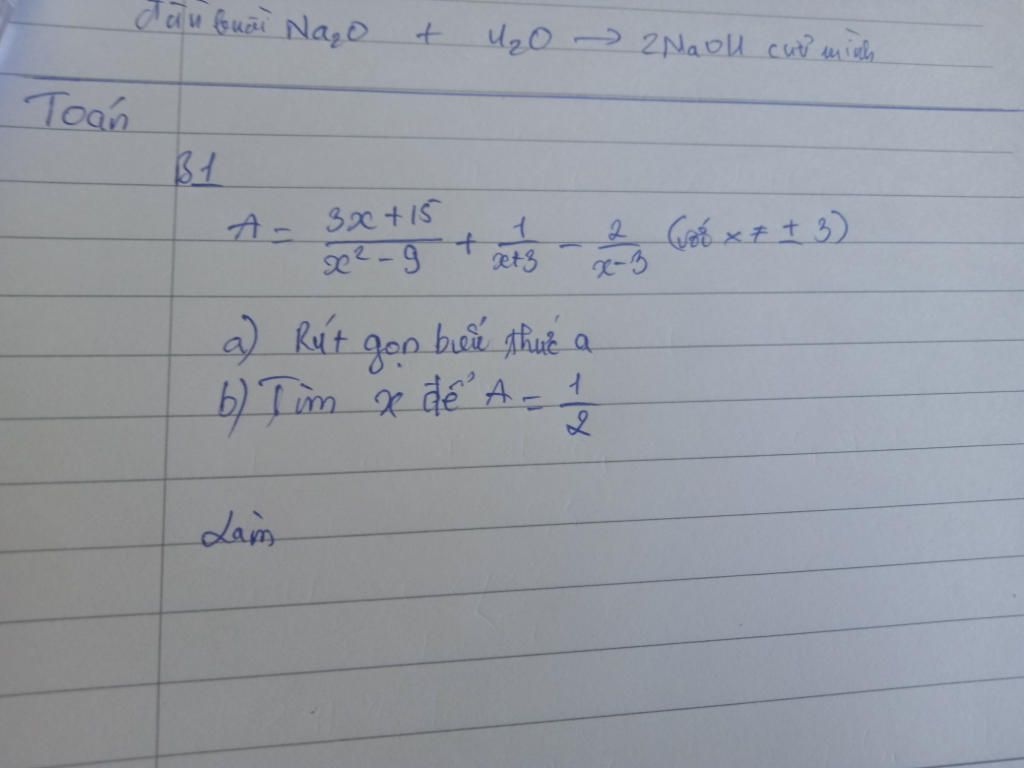 đầu buồi Na₂O + H₂O → 2NaOH cứu mình
Toán
B1
A = (3x + 15)/(x² - 9) + 1/(x+3) - 2/(x-3) (với x ≠ ± 3)
a) Rút gọn biểu thức a
b) Tìm x để A = 1/2
Làm